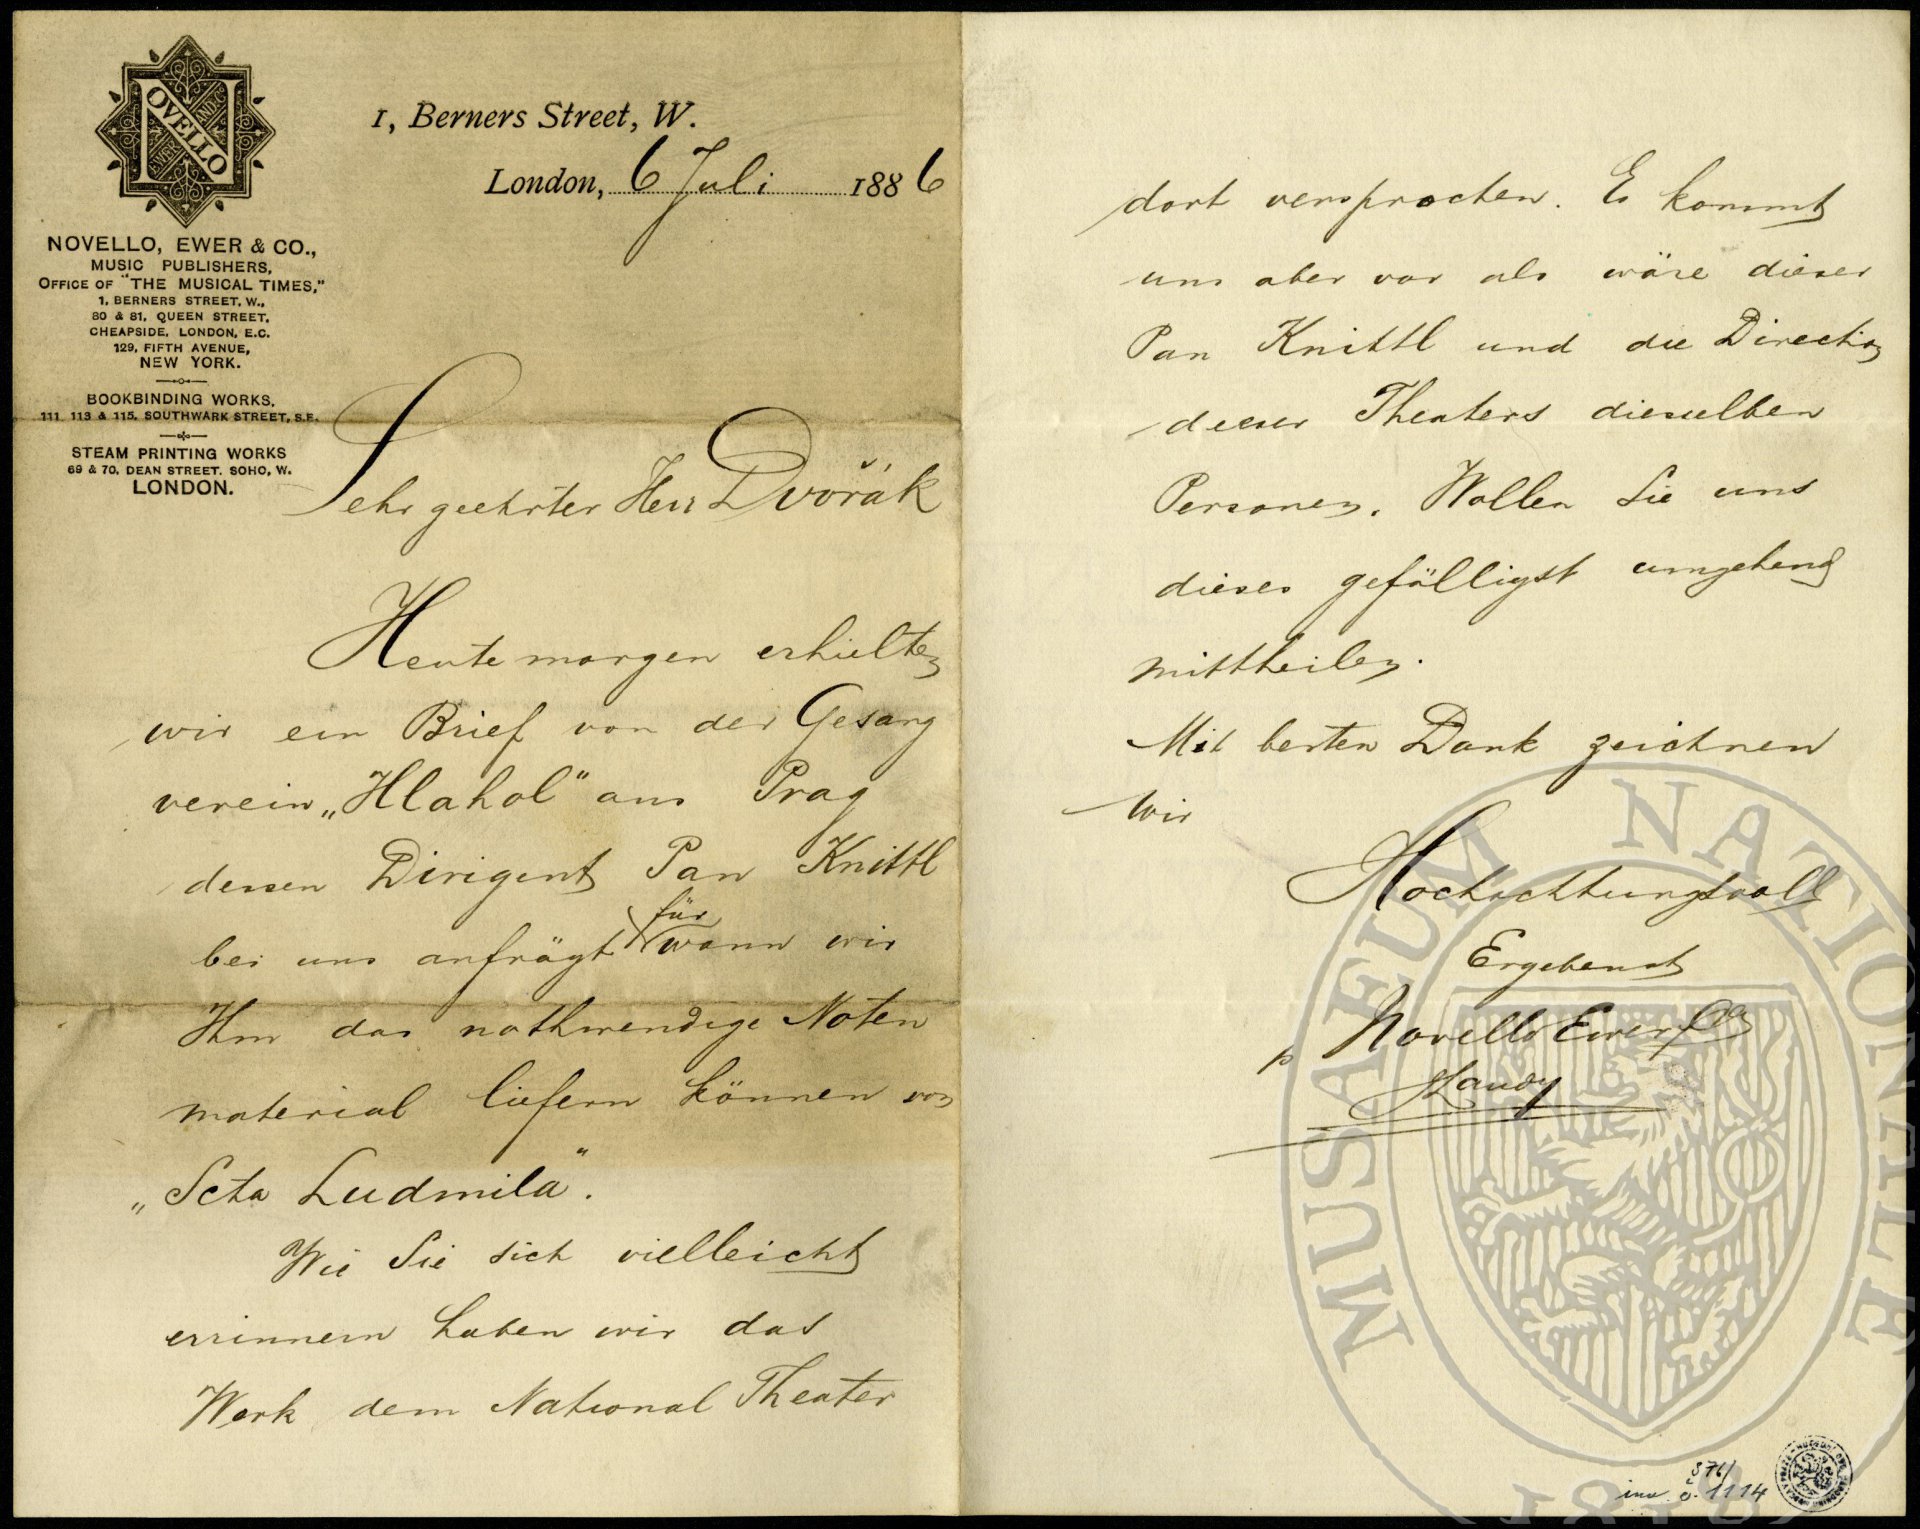 NOVELLO
EWER
AND Co
NOVELLO, EWER & CO.,
MUSIC PUBLISHERS,
OFFICE OF "THE MUSICAL TIMES,"
1, BERNERS STREET, W.,
80 & 81, QUEEN STREET,
CHEAPSIDE, LONDON, E.C.
129, FIFTH AVENUE,
NEW YORK.
BOOKBINDING WORKS,
111 113 & 115, SOUTHWARK STREET, S.E.
STEAM PRINTING WORKS
69 & 70, DEAN STREET, SOHO, W.
LONDON.
1, Berners Street, W.
London, 6 Juli 1886
Sehr geehrter Herr Dvořák
Heute morgen erhielten
wir ein Brief von der Gesang
verein „Hlahol" aus Prag
dessen Dirigent Pan Knittl
bei uns anfrägt für wann wir
Ihm das nothwendige Noten
material liefern können von
„Scta Ludmila".
Wie Sie sich vielleicht
errinnern haben wir das
Werk dem National Theater
dort versprochen. Es kommt
uns aber vor als wäre dieser
Pan Knittl und die Direction
dieser Theaters dieselben
Personen. Wollen Sie uns
dieses gefälligst umgehend
mittheilen.
Mit besten Dank zeichnen
wir
Hochachtungsvoll
Ergebenst
p Novello Ewer & Co
MUSAEUM NATIONALE
1818
376/
inv. č. 1114